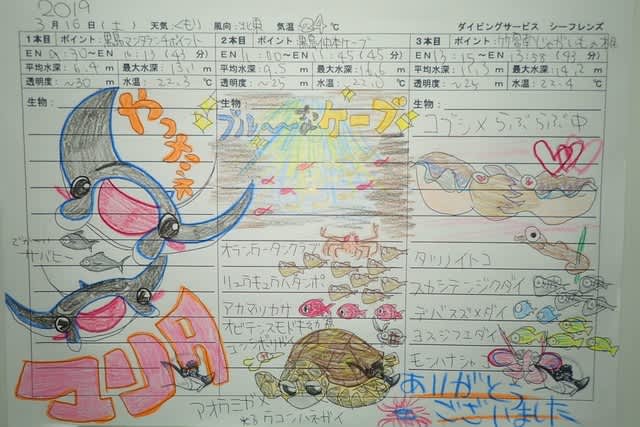 2019
3月16日（土） 天気：くもり 風向：北東 気温：24℃ ダイビングサービス シーフレンズ
1本目 ポイント：黒島マンタランチポイント
EN 9：30〜EN 10：13（43分）
平均水深：6.4m 最大水深：13.1m
透明度：〜30m 水温：22.3℃
生物：
やったぁ
でかーい
サバヒー
マンタ
2本目 ポイント：黒島仲本ケーブ
EN 11：00〜EN 11：45（45分）
平均水深：9.5m 最大水深：
透明度：〜25m 水温：22.0℃
生物：
ブルー〜なケーブ
オランウータンクラブ
リュウキュウハタンポ
アカマツカサ
オビテンスモドキ幼魚
コンゴウフグ
アオウミガメ
ウコンハネガイ
3本目 ポイント：竹富南
EN 13：15〜EN
平均水深： 最大水深：14.2m
透明度：〜20m 水温：22.4℃
生物：
コブシメ らぶらぶ中
タツノイトコ
スカシテンジクダイ
デバスズメダイ
ヨスジフエダイ
モンハナシャコ
ありがとう
ございました